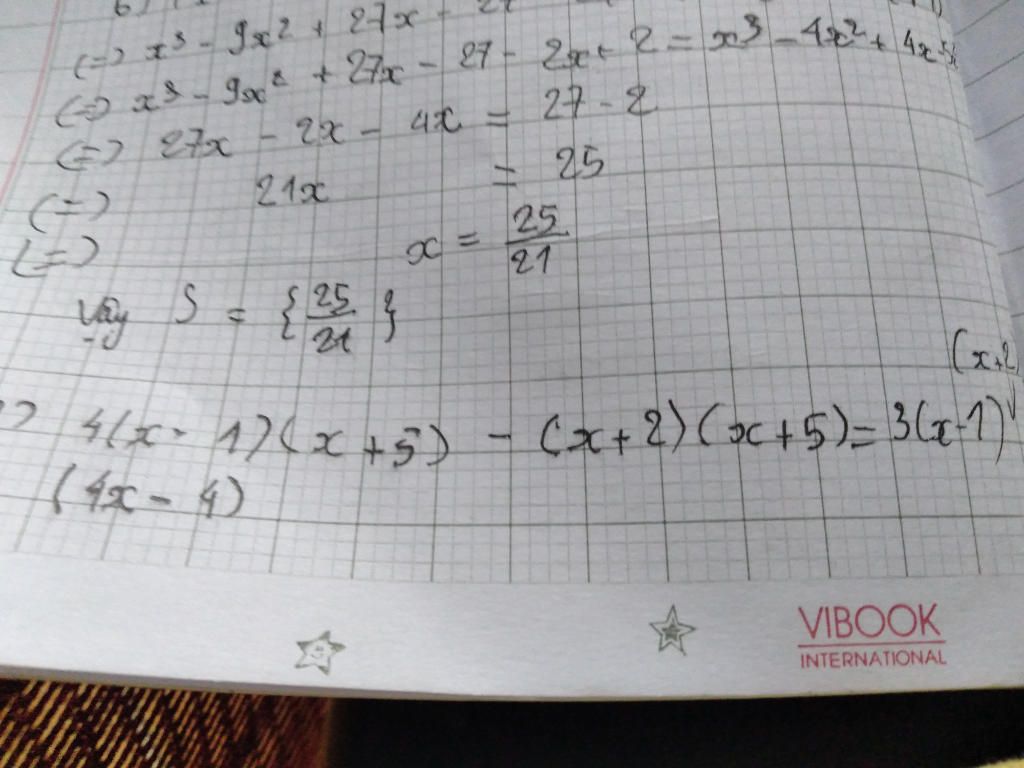 (=) x³ - 9x² + 27x - 27
(=) x³ - 9x² + 27x - 27 - 2x + 2 = x³ - 4x² + 4x - 5x
(=) 27x - 2x - 4x = 27 - 2
(=) 21x = 25
(=) x = 25/21
Vậy S = {25/21}
(x+2)
4(x - 1)(x + 5) - (x + 2)(x + 5) = 3(x - 1)
(4x - 4)
VIBOOK
INTERNATIONAL